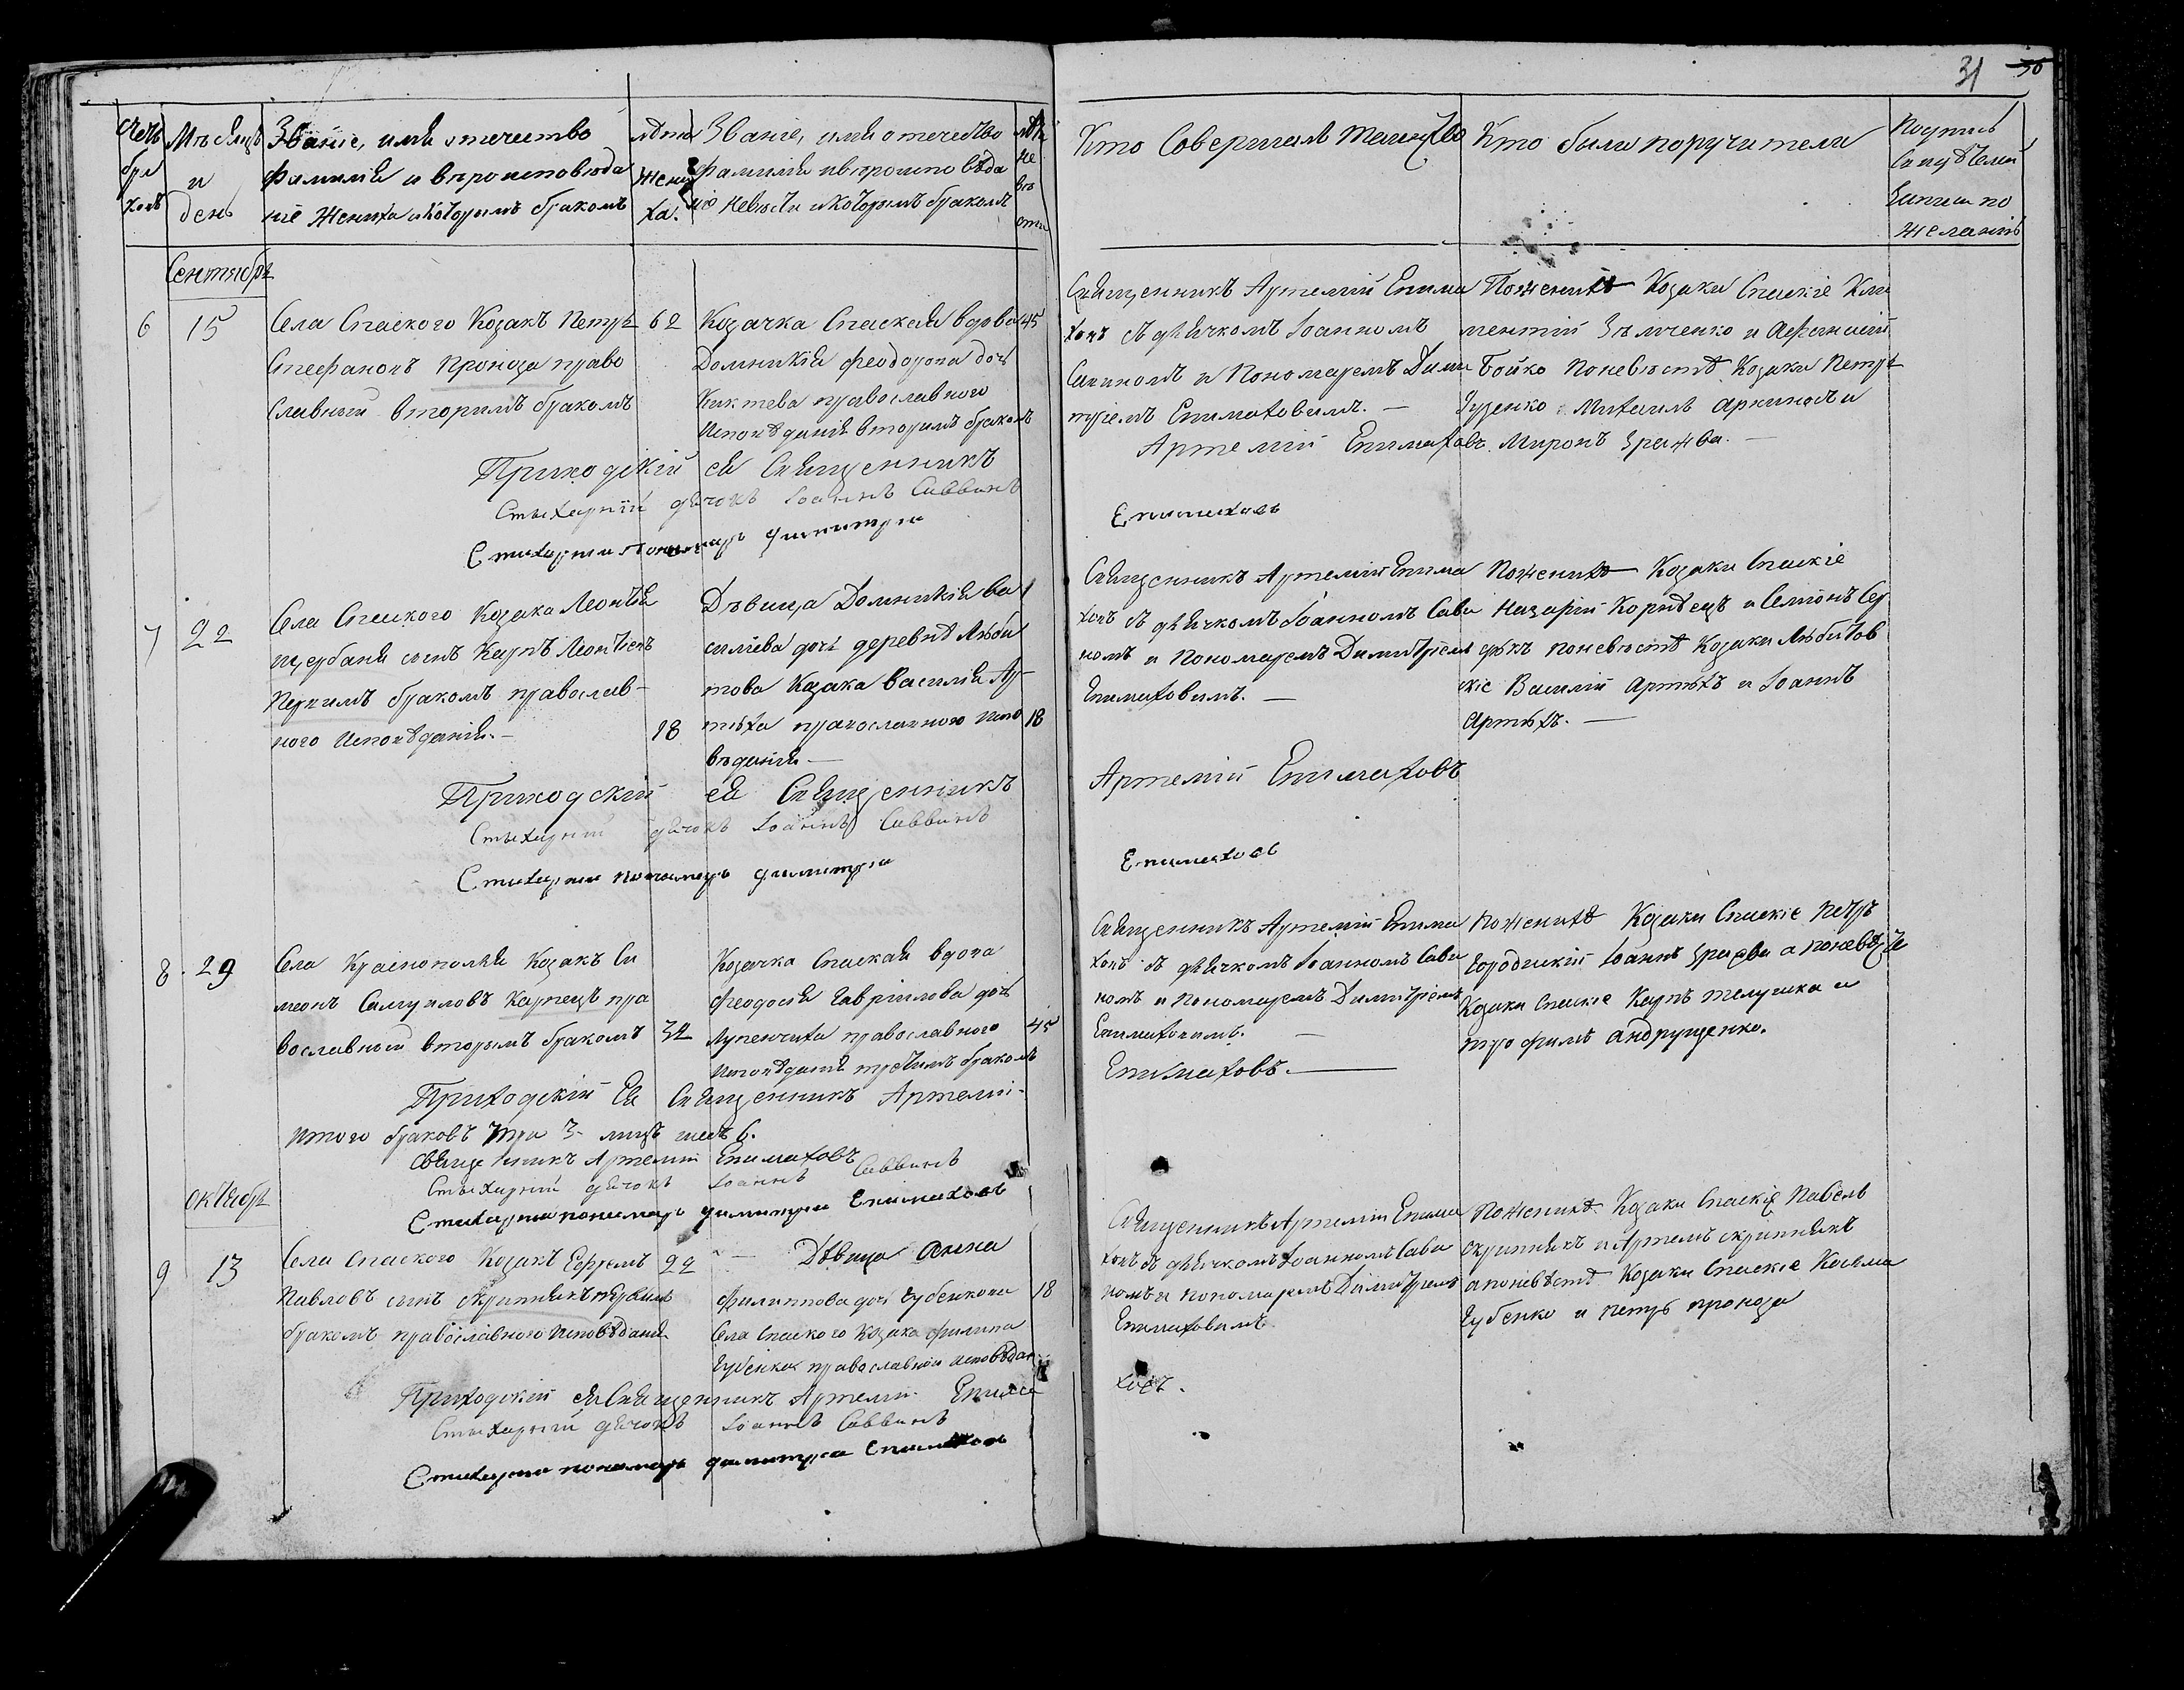 31 30
Счетъ браковъ
Мѣсяцъ и день
Званіе, имя отчество
фамилія и вѣроисповѣда
ніе Жениха и которымъ бракомъ
лѣта жениха.
Званіе, имя отечество
фамилія и вѣроисповѣда
ніе Невѣсти и которымъ бракомъ
лѣта невѣсти
Кто Совершалъ таинство
Кто были поручители
Подпись
Свидѣтелей
Записи по
желанію
Сентябрь
6 15
Села Спаского Козакъ Петръ 62
Стефановъ Проноза право
славный вторимъ бракомъ
Козачка Спаская вдова 45
Домникія Феодорова дочь
православного
Исповѣданія вторимъ бракомъ
Священникъ Артемій Епима
ховъ съ дьячкомъ Іоанномъ
Савиномъ и Пономаремъ Дими
тріемъ Епимаховимъ. —
Поженихѣ Козаки Спаскіе Кли
ментій Зѣлченко и Афанасій
Бойко Поневѣстѣ Козаки Петръ
Гуценко Михаилъ и
Миронъ —
Приходскій ея Священникъ Артемій Епимаховъ
Стыхарній дьячокъ Іоаннъ Саввинъ
Стихарни пономарь димитри Епимаховъ
7 22
Села Спаского Козака Леонтія
Щербаня сынъ Карпъ Леонтіевъ
Первимъ бракомъ православ-
ного Исповѣданія. — 18
Дѣвица Домникія Ва
силіева дочь деревнѣ Любы
това Козака Василія Ар-
тюха православного испо 18
вѣданія —
Священникъ Артемій Епима
ховъ съ дьячкомъ Іоанномъ Сави
номъ и Пономаремъ Димитріемъ
Епимаховимъ. —
Поженихѣ Козаки Спаскіе
Назарій Корнѣецъ и Семіонъ Сер
дюкъ поневѣстѣ Козаки Любитов
скіе Василій Артюхъ и Іоаннъ
Артюхъ. —
Приходскій ея Священникъ Артемій Епимаховъ
Стыхарній дьячокъ Іоаннъ Саввинъ
Стихарни пономарь димитри Епимаховъ
8. 29
Села Краснополья Козакъ Си
меонъ Самуиловъ Карпецъ пра
вославный вторымъ бракомъ 32
Козачка Спаская вдова
Феодосія Гавріилова дочь
Лупенчиха православного 45
Исповѣданія третимъ бракомъ
Священникъ Артемій Епима
ховъ съ дьячкомъ Іоанномъ Сави
номъ и Пономаремъ Димитріемъ
Епимаховимъ. —
Поженихѣ Козаки Спаскіе Петръ
Городискій Іоаннъ а поневѣстѣ
Козаки Спаскіе Карпъ Телушка и
Трофимъ Андрущенко.
Приходскій Ея Священникъ Артемій- Епимаховъ. —
Итого браковъ три 3- лицъ шесть 6.
Священникъ Артемій Епимаховъ
Стыхарний дьячокъ Іоаннъ Саввинъ
Стихарни пономарь димитри Епимаховъ
Октябрь
9 13
Села Спаского Козакъ Ефремъ 22
Павловъ сынъ Скрипникъ первимъ
бракомъ православного Исповѣданія.
Дѣвица Анна
Филиппова дочь Губенкова 18
Села Спаского Козака Филипа
Губенка православной исповѣдан
Священникъ Артемій Епима
ховъ съ дьячкомъ Іоанномъ Сави
номъ и пономаремъ Димитріемъ
Епимаховимъ
Поженихѣ Козаки Спаскіе Павелъ
Скрипникъ и Артемъ Скрипникъ
а поневѣстѣ Козаки Спаскіе Косьма
Губенко и Петръ Проноза
Приходскій ея Священникъ Артемій Епима ховъ.
Стыхарний дьячокъ Іоаннъ Саввинъ
Стихарни пономарь димитри Епимаховъ